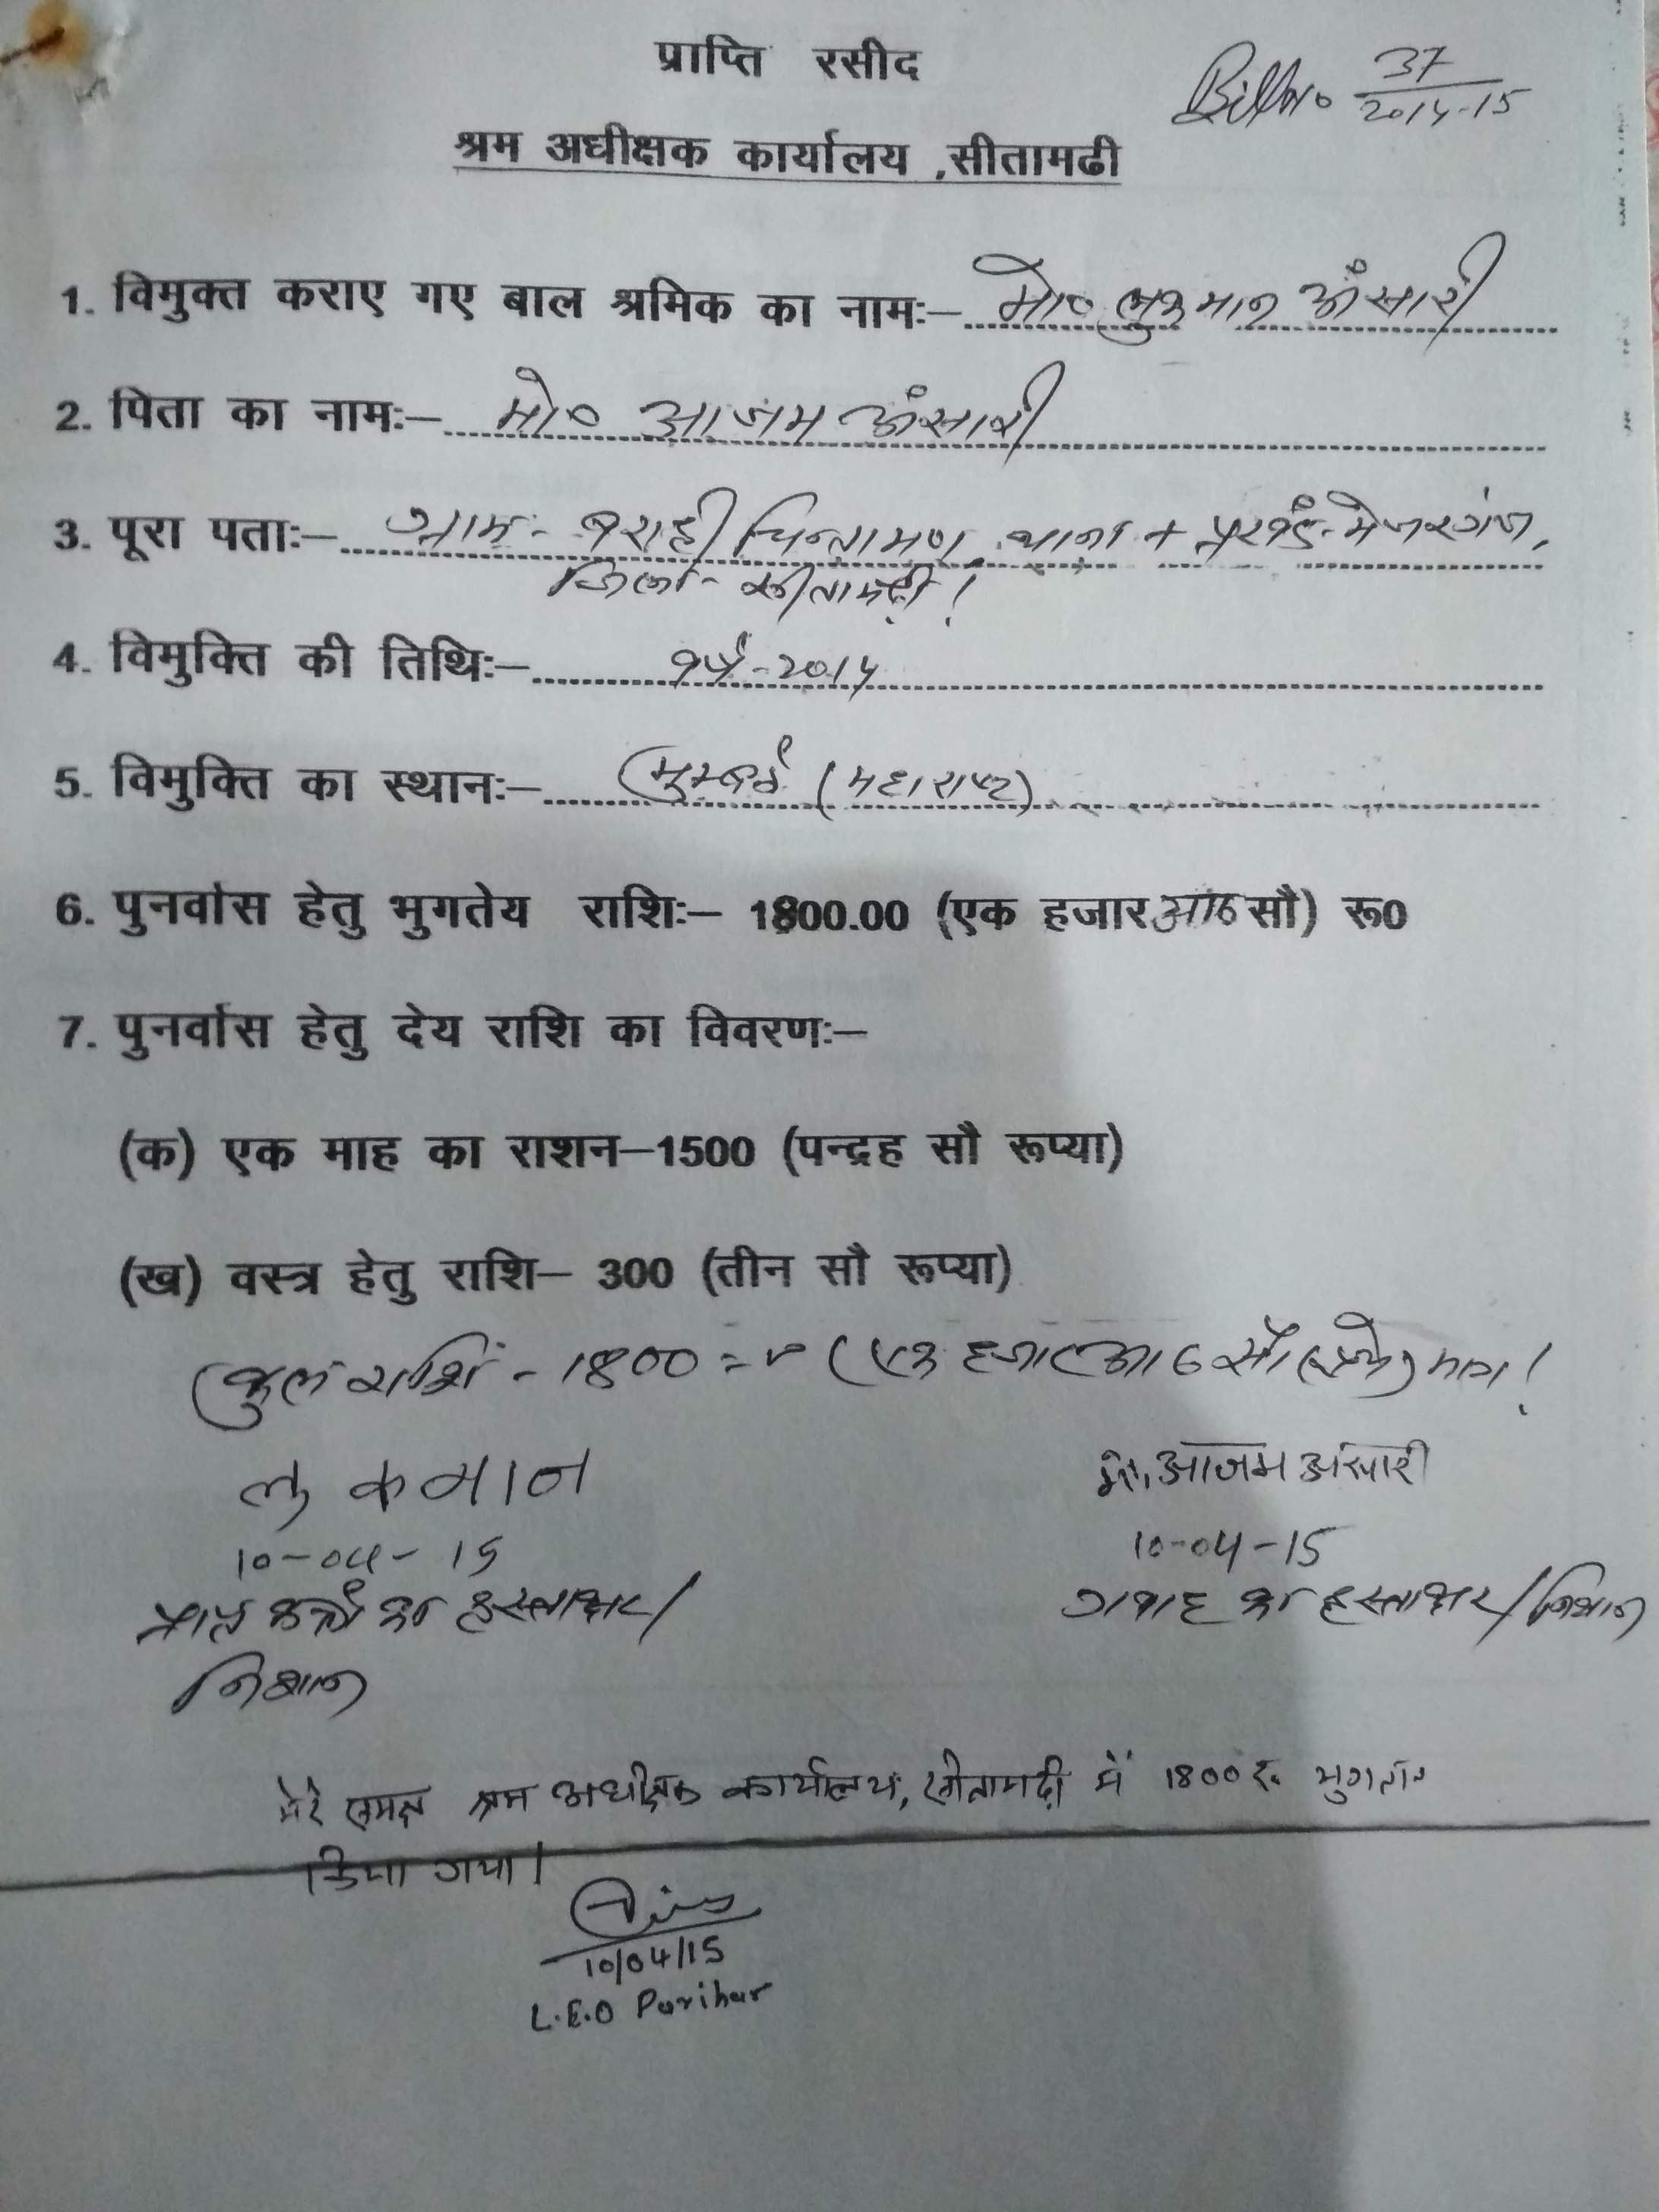 प्राप्ति रसीद
Bill No 37/2014-15
श्रम अधीक्षक कार्यालय ,सीतामढी
1. विमुक्त कराए गए बाल श्रमिक का नामः– मो० लुकमान अंसारी
2. पिता का नामः– मो० आजम अंसारी
3. पूरा पताः– ग्राम:- बराही चिन्तामण, थाना + प्रखंड- मेजरगंज,
जिला- सीतामढ़ी!
4. विमुक्ति की तिथिः– वर्ष-2014
5. विमुक्ति का स्थानः– मुम्बई (महाराष्ट्र)
6. पुनर्वास हेतु भुगतेय राशिः– 1800.00 (एक हजार आठ सौ) रू0
7. पुनर्वास हेतु देय राशि का विवरणः–
(क) एक माह का राशन–1500 (पन्द्रह सौ रूप्या)
(ख) वस्त्र हेतु राशि– 300 (तीन सौ रूप्या)
कुल राशि - 1800 = (एक हजार आठ सौ रूपये) मात्र!
लुकमान
मो. आजम अंसारी
10-04-15
10-04-15
प्राप्त कर्ता का हस्ताक्षर/
गवाह का हस्ताक्षर/निशान
निशान
मेरे समक्ष श्रम अधीक्षक कार्यालय, सीतामढ़ी में 1800 रु. भुगतान
किया गया।
10/04/15
L.E.O Parihar